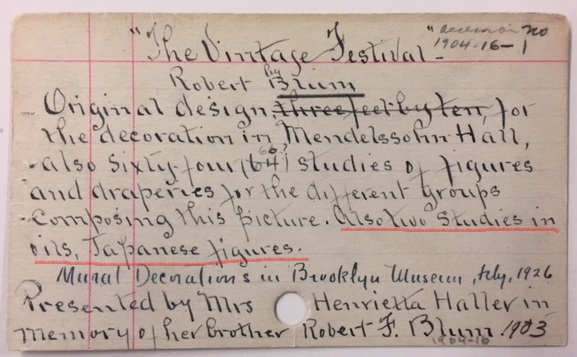 "The Vintage Festival" - accession no
1904-16-1
by
Robert Blum
Original design, three feet by ten, for
the decoration in Mendelssohn Hall,
66
also sixty-four (64) studies of figures
and draperies for the different groups
composing this picture. Also two studies in
oils, Japanese figures.
Mural Decorations in Brooklyn Museum, July, 1926
Presented by Mrs Henrietta Haller in
memory of her brother Robert F. Blum. 1903
1904-16